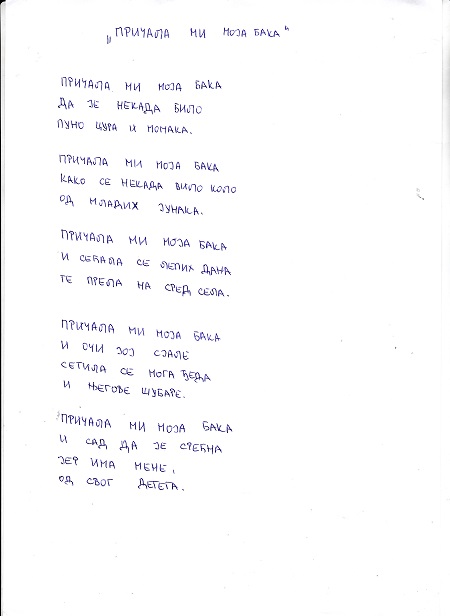 „ПРИЧАЛА МИ МОЈА БАКА"
ПРИЧАЛА МИ МОЈА БАКА
ДА ЈЕ НЕКАДА БИЛО
ПУНО ЦУРА И МОМАКА.
ПРИЧАЛА МИ МОЈА БАКА
КАКО СЕ НЕКАДА ВИЛО КОЛО
ОД МЛАДИХ ЈУНАКА.
ПРИЧАЛА МИ МОЈА БАКА
И СЕЋАЛА СЕ ЛЕПИХ ДАНА
ТЕ ПРЕЛА НА СРЕД СЕЛА.
ПРИЧАЛА МИ МОЈА БАКА
И ОЧИ ЈОЈ СЈАЛЕ
СЕТИЛА СЕ МОГА ЂЕДА
И ЊЕГОВЕ ШУБАРЕ.
ПРИЧАЛА МИ МОЈА БАКА
И САД ДА ЈЕ СРЕЋНА
ЈЕР ИМА МЕНЕ,
ОД СВОГ ДЕТЕТА.